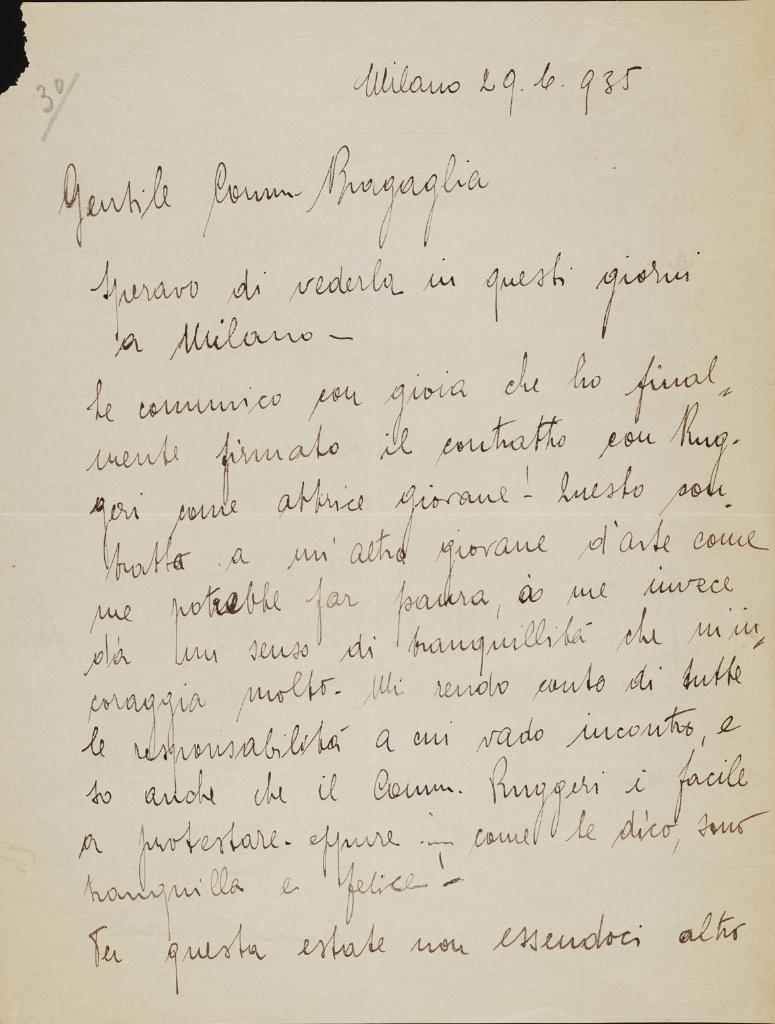 30
Milano 29.6.935
Gentile Comm. Bragaglia
Speravo di vederla in questi giorni
a Milano -
Le comunico con gioia che ho final=
mente firmato il contratto con Rug-
geri come attrice giovane! - Questo con-
tratto a un'altra giovane d'arte come
me potrebbe far paura, a me invece
dà un senso di tranquillità che m'in=
coraggia molto - Mi rendo conto di tutte
le responsabilità a cui vado incontro, e
so anche che il Comm. Ruggeri è facile
a protestare - eppure - come le dico, sono
tranquilla e felice! -
Per questa estate non essendoci altro